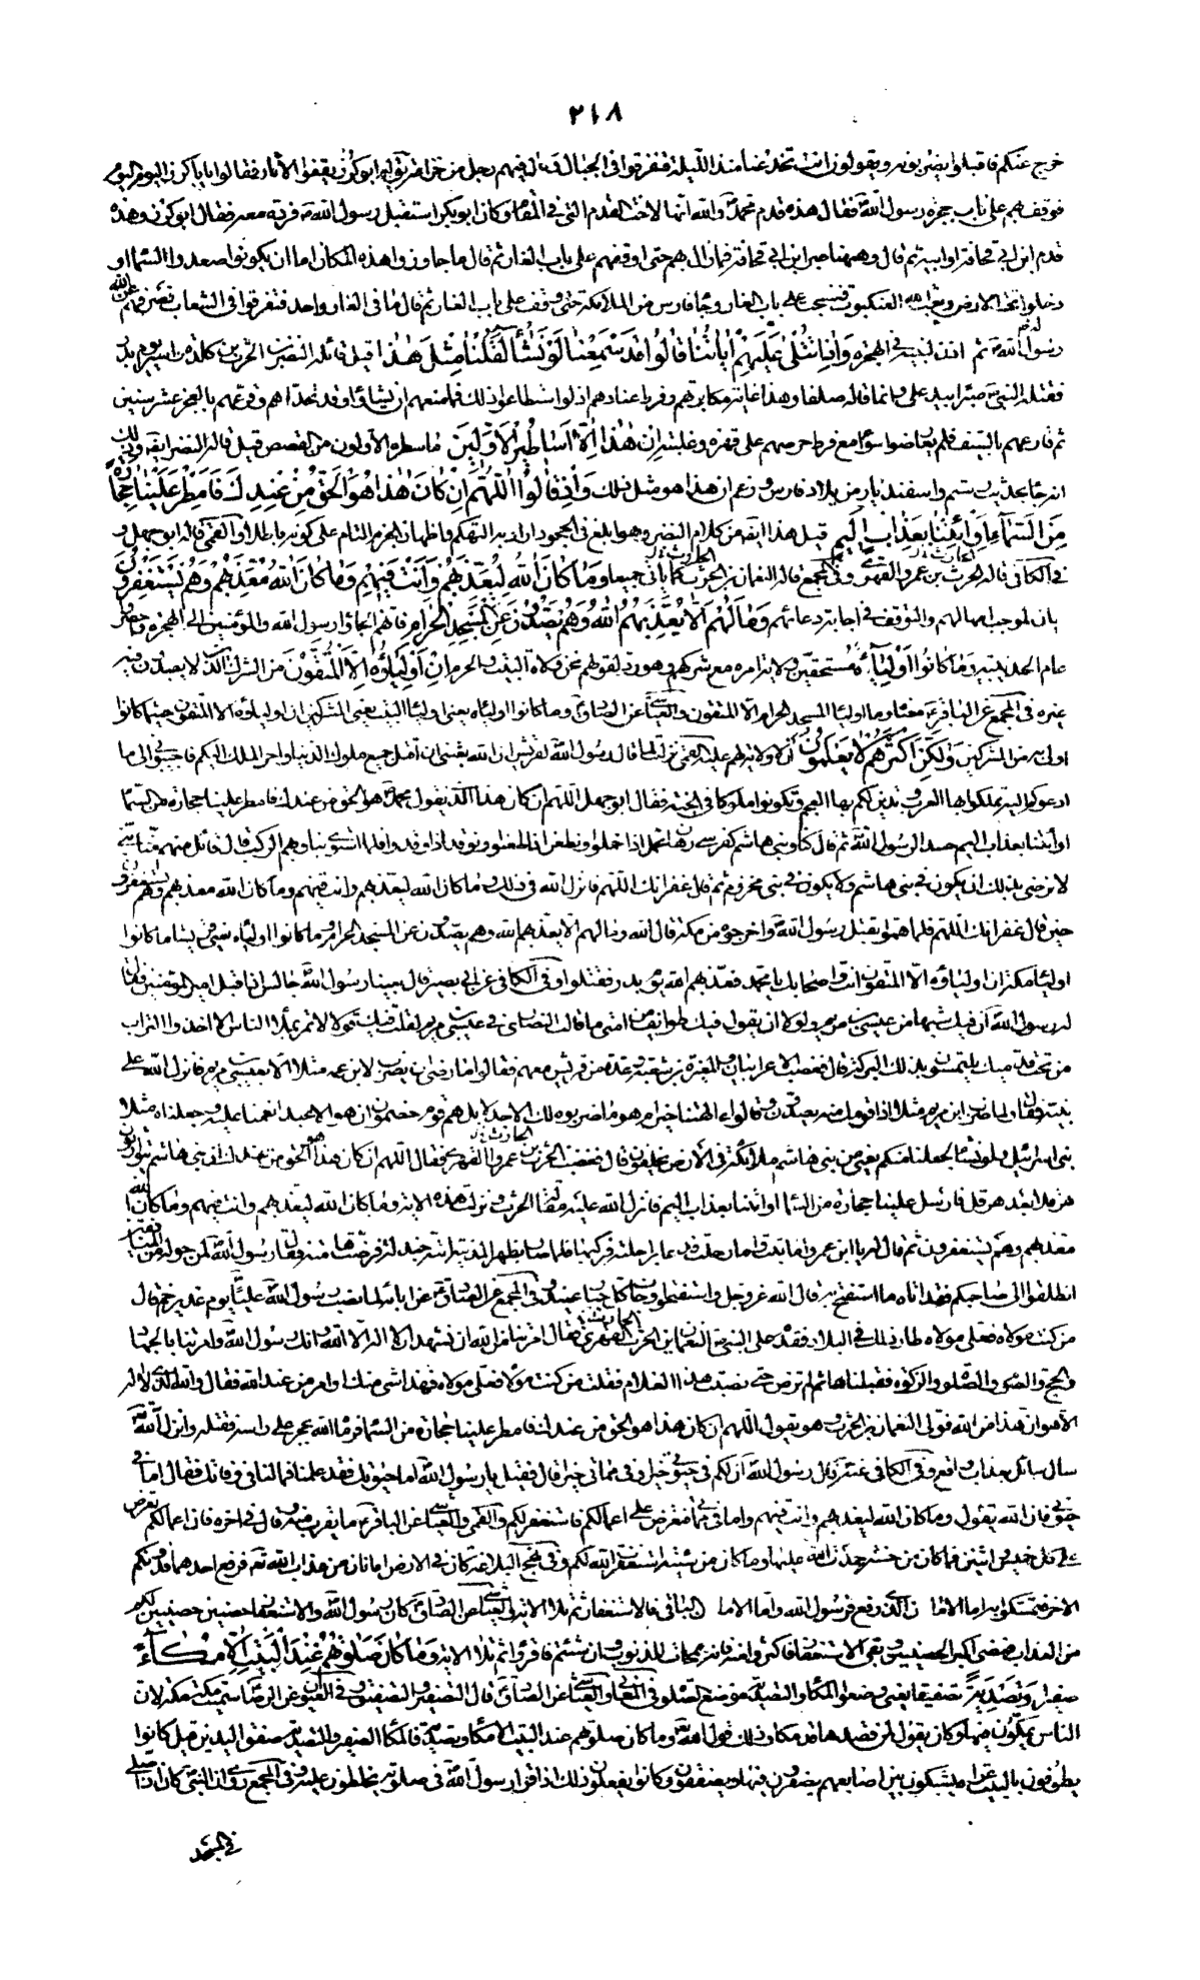 ٢١٨
خرج عنكم فاقبلوا يضربونه ويقولون انت تخدعنا منذ الليلة فتفرقوا في الجبال وكان فيهم رجل من خزاعة يقال له ابو كرز يقفو الاثار فقالوا يا ابا كرز اليوم اليوم
فوقف بهم على باب حجرة رسول الله فقال هذه قدم محمد والله انها لاخت القدم التي في المقام وكان ابو بكر استقبل رسول الله فرده معه فقال ابو كرز وهذه
قدم ابن ابي قحافة او ابيه ثم قال وههنا عبر ابن ابي قحافة فما زال بهم حتى اوقفهم على باب الغار ثم قال ما جاوزوا هذا المكان اما ان يكونوا صعدوا السماء او
دخلوا تحت الارض وبعث الله العنكبوت فنسجت على باب الغار وجاء فارس من الملائكة حتى وقف على باب الغار ثم قال ما في الغار واحد فتفرقوا في الشعاب فصرفهم الله عن
رسول الله ثم اذن لنبيه في الهجرة وَاِذا تُتْلى عَلَيْهِمْ اياتُنا قالُوا قَدْ سَمِعْنا لَوْ نَشاءُ لَقُلْنا مِثْلَ هذا قيل قائله النضر بن الحرث بن كلدة اسر يوم بدر
فقتله النبي صبرا بيد علي وانما قاله صلفا وهذا غاية مكابرتهم وفرط عنادهم اذ لو استطاعوا ذلك فما منعهم ان يشاؤا وقد تحداهم وقرعهم بالعجز عشر سنين
ثم قارعهم بالسيف فلم يعارضوا سواه مع فرط حرصهم على قهره وغلبته اِنْ هذا اِلّا اَساطيرُ الْاَوَّلينَ ما سطره الاولون من القصص قيل قاله النضر ايضا وذلك
انه جاء بحديث رستم واسفنديار من بلاد فارس وزعم ان هذا هو مثل ذلك وَاِذْ قالُوا اللّهُمَّ اِنْ كانَ هذا هُوَ الْحَقَّ مِنْ عِنْدِكَ فَاَمْطِرْ عَلَيْنا حِجارَةً
مِنَ السَّماءِ اَوِ ائْتِنا بِعَذابٍ اَليمٍ قيل هذا ايضا من كلام النضر وهو ابلغ في الجحود اراد به التهكم واظهار الجزم التام على كونه باطلا والقمي قاله ابو جهل و
في الكافي قاله الحرث بن عمرو الفهري وفي المجمع قاله النعمان بن الحرث كما ياتي جميعا وَما كانَ اللهُ لِيُعَذِّبَهُمْ وَاَنْتَ فيهِمْ وَما كانَ اللهُ مُعَذِّبَهُمْ وَهُمْ يَسْتَغْفِرُونَ
بيان لموجب امهالهم والتوقف في اجابة دعائهم وَما لَهُمْ اَلّا يُعَذِّبَهُمُ اللهُ وَهُمْ يَصُدُّونَ عَنِ الْمَسْجِدِ الْحَرامِ فانهم الجاؤا رسول الله والمؤمنين الى الهجرة واحصروا
عام الحديبية وَما كانُوا اَوْلِياءَهُ مستحقين ولاية امره مع شركهم وهو رد لقولهم نحن ولاة البيت والحرم اِنْ اَوْلِياؤُهُ اِلَّا الْمُتَّقُونَ من الشرك الذين لا يعبدون فيه
غيره في المجمع عن الباقر معناه وما اولياء المسجد الحرام الا المتقون والعياشي عن الصادق وما كانوا اولياءه يعني اولياء البيت يعني المشركين ان اولياؤه الا المتقون حيثما كانوا
اولى به من المشركين وَلكِنَّ اَكْثَرَهُمْ لا يَعْلَمُونَ ان لا ولاية لهم عليه القمي نزلت لما قال رسول الله لقريش ان الله بعثني ان اقتل جميع ملوك الدنيا واجر الملك اليكم فاجيبوني الى ما
ادعوكم اليه تملكوا بها العرب وتدين لكم بها العجم وتكونوا ملوكا في الجنة فقال ابو جهل اللهم ان كان هذا الذي يقول محمد هو الحق من عندك فامطر علينا حجارة من السماء
او ائتنا بعذاب اليم حسدا لرسول الله ثم قال كنا وبني هاشم كفرسي رهان نحمل اذا حملوا ونطعن اذا طعنوا ونوقد اذا اوقدوا فلما استوى بنا وبهم الركب قال قائل منهم منا نبي
لا نرضى بذلك ان يكون في بني هاشم ولا يكون في بني مخزوم ثم قال غفرانك اللهم فانزل الله في ذلك وما كان الله ليعذبهم وانت فيهم وما كان الله معذبهم وهم يستغفرون
حين قال غفرانك اللهم فلما هموا بقتل رسول الله واخرجوه من مكة قال الله وما لهم الا يعذبهم الله وهم يصدون عن المسجد الحرام وما كانوا اولياءه يعني قريشا ما كانوا
اولياء مكة ان اولياؤه الا المتقون انت واصحابك يا محمد فعذبهم الله يوم بدر فقتلوا وفي الكافي عن ابي بصير قال بينا رسول الله جالس اذ اقبل امير المؤمنين فقال
له رسول الله ان فيك شبها من عيسى بن مريم ولولا ان يقول فيك طوايف من امتي ما قالت النصارى في عيسى بن مريم لقلت فيك قولا لا تمر بملاء من الناس الا اخذوا التراب
من تحت قدميك يلتمسون بذلك البركة قال فغضب الاعرابيان والمغيرة بن شعبة وعدة من قريش معهم فقالوا ما رضي ان يضرب لابن عمه مثلا الا بعيسى بن مريم فانزل الله على
نبيه فقال ولما ضرب ابن مريم مثلا اذا قومك منه يصدون وقالوا ءالهتنا خير ام هو ما ضربوه لك الا جدلا بل هم قوم خصمون ان هو الا عبد انعمنا عليه وجعلناه مثلا
لبني اسرائيل ولو نشاء لجعلنا منكم يعني من بني هاشم ملائكة في الارض يخلفون قال فغضب الحرث بن عمرو الفهري فقال اللهم ان كان هذا هو الحق من عندك ان بني هاشم يتوارثون
هرقلا بعد هرقل فارسل علينا حجارة من السماء او ائتنا بعذاب اليم فانزل الله عليه مقالة الحرث ونزلت هذه الاية وما كان الله ليعذبهم وانت فيهم وما كان الله
معذبهم وهم يستغفرون ثم قال له يا ابن عمرو اما تبت واما رحلت فدعا براحلته فركبها فلما صار بظهر المدينة اتته جندلة فرضت هامته فقال رسول الله لمن حوله من المنافقين
انطلقوا الى صاحبكم فقد اتاه ما استفتح به قال الله عز وجل واستفتحوا وخاب كل جبار عنيد وفي المجمع عن الصادق عن ابائه لما نصب رسول الله عليا يوم غدير خم قال
من كنت مولاه فعلي مولاه طار ذلك في البلاد فقدم على النبي النعمان بن الحرث الفهري فقال امرتنا من الله ان نشهد ان لا اله الا الله وانك رسول الله وامرتنا بالجهاد
والحج والصوم والصلوة والزكوة فقبلناها ثم لم ترض حتى نصبت هذا الغلام فقلت من كنت مولاه فعلي مولاه فهذا شيء منك او امر من عند الله فقال والله الذي لا اله
الا هو ان هذا من الله فولى النعمان بن الحرث وهو يقول اللهم ان كان هذا هو الحق من عندك فامطر علينا حجارة من السماء فرماه الله بحجر على راسه فقتله وانزل الله
سال سائل بعذاب واقع وفي الكافي عنه قال رسول الله ان لكم في حيوتي خيرا وفي مماتي خيرا قال فقيل يا رسول الله اما حيوتك فقد علمنا فما لنا في وفاتك فقال اما في
حيوتي فان الله يقول وما كان الله ليعذبهم وانت فيهم واما في مماتي فتعرض علي اعمالكم فاستغفر لكم والقمي والعياشي عن الباقر ما يقرب منه وقال في اخره فان اعمالكم تعرض
علي كل خميس واثنين فما كان من حسنة حمدت الله عليها وما كان من سيئة استغفر الله لكم وفي نهج البلاغة كان في الارض امانان من عذاب الله فرفع احدهما فدونكم
الاخر فتمسكوا به اما الامان الذي رفع فرسول الله واما الامان الباقي فالاستغفار ثم تلا الاية والعياشي عن الصادق كان رسول الله والاستغفار حصنين حصينين لكم
من العذاب فمضى اكبر الحصنين وبقي الاستغفار فاكثروا منه فانه ممحاة للذنوب وان شئتم فاقرؤا ثم تلا الاية وَما كانَ صَلوتُهُمْ عِنْدَ الْبَيْتِ اِلّا مُكاءً
صفيرا وَتَصْدِيَةً تصفيقا يعني وضعوا المكاء والتصدية موضع الصلوة في المعاني والعياشي عن الصادق قال التصفير والتصفيق وفي العيون عن الرضا سميت مكة مكة لان
الناس يمكون فيها وكان يقال لمن قصدها قد مكا وذلك قول الله وما كان صلوتهم عند البيت الا مكاء وتصدية فالمكاء الصفير والتصدية صفق اليدين قيل كانوا
يطوفون بالبيت عراة يشبكون بين اصابعهم يصفرون فيها ويصفقون وكانوا يفعلون ذلك اذا قرا رسول الله في صلوته يخلطون عليه وفي المجمع روي ان النبي كان اذا صلى
في المسجد